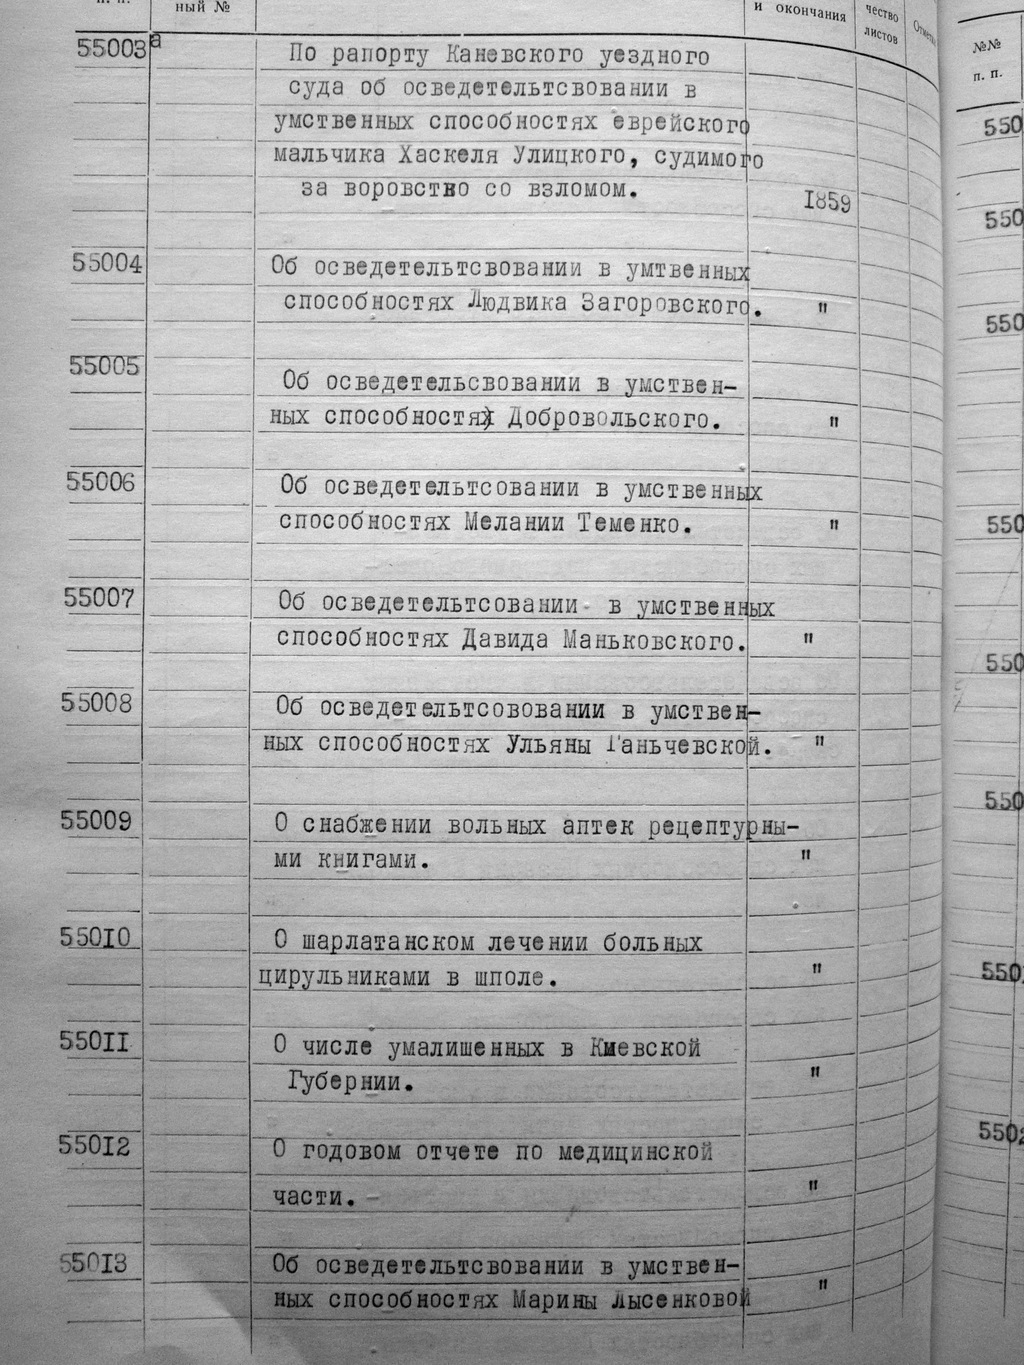 п. п.
ный №
и окончания
чество
листов
55003а
По рапорту Каневского уездного
суда об осведетельтсвовании в
умственных способностях еврейского
мальчика Хаскеля Улицкого, судимого
за воровство со взломом.
1859
55004
Об осведетельтсвовании в умтвенных
способностях Людвика Загоровского. "
55005
Об осведетельсвовании в умствен-
ных способностях Добровольского. "
55006
Об осведетельтсовании в умственных
способностях Мелании Теменко. "
55007
Об осведетельтсовании- в умственных
способностях Давида Маньковского. "
55008
Об осведетельтсововании в умствен-
ных способностях Ульяны Ганьчевской. "
55009
О снабжении вольных аптек рецептурны-
ми книгами. "
55010
О шарлатанском лечении больных
цирульниками в шполе. "
55011
О числе умалишенных в Киевской
Губернии. "
55012
О годовом отчете по медицинской
части. - "
55013
Об осведетельтсвовании в умствен-
ных способностях Марины Лысенковой "
№№
п. п.